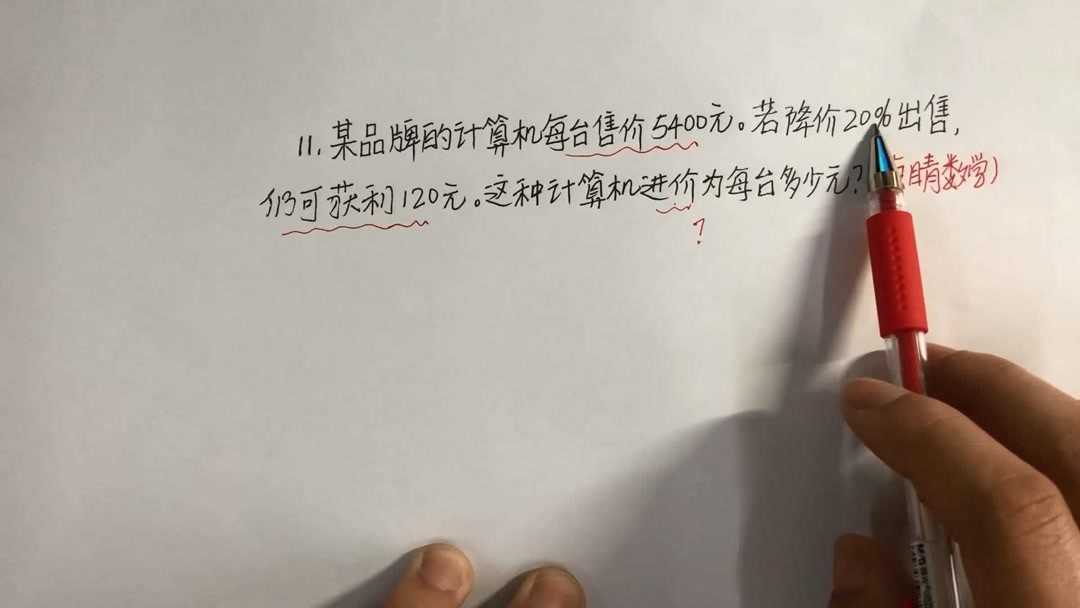 11.某品牌的计算机每台售价5400元。若降价20%出售,
仍可获利120元。这种计算机进价为每台多少元?睛数学)
?